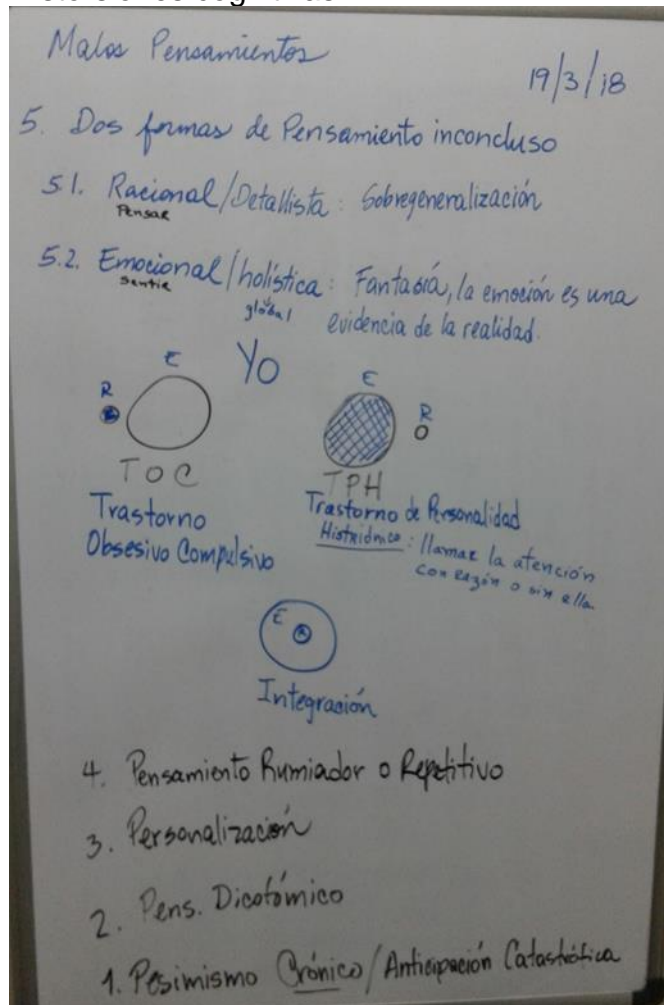 Malos Pensamientos
19/3/18
5. Dos formas de Pensamiento inconcluso
5.1. Racional/Detallista: Sobregeneralización
Pensar
5.2. Emocional/holística: Fantasía, la emoción es una
sentir
global
evidencia de la realidad.
Yo
E
R
TOC
Trastorno
Obsesivo Compulsivo
E
R
TPH
Trastorno de Personalidad
Histriónico: llamar la atención
con razón o sin ella.
E
R
Integración
4. Pensamiento Rumiador o Repetitivo
3. Personalización
2. Pens. Dicotómico
1. Pesimismo Crónico/Anticipación Catastrófica